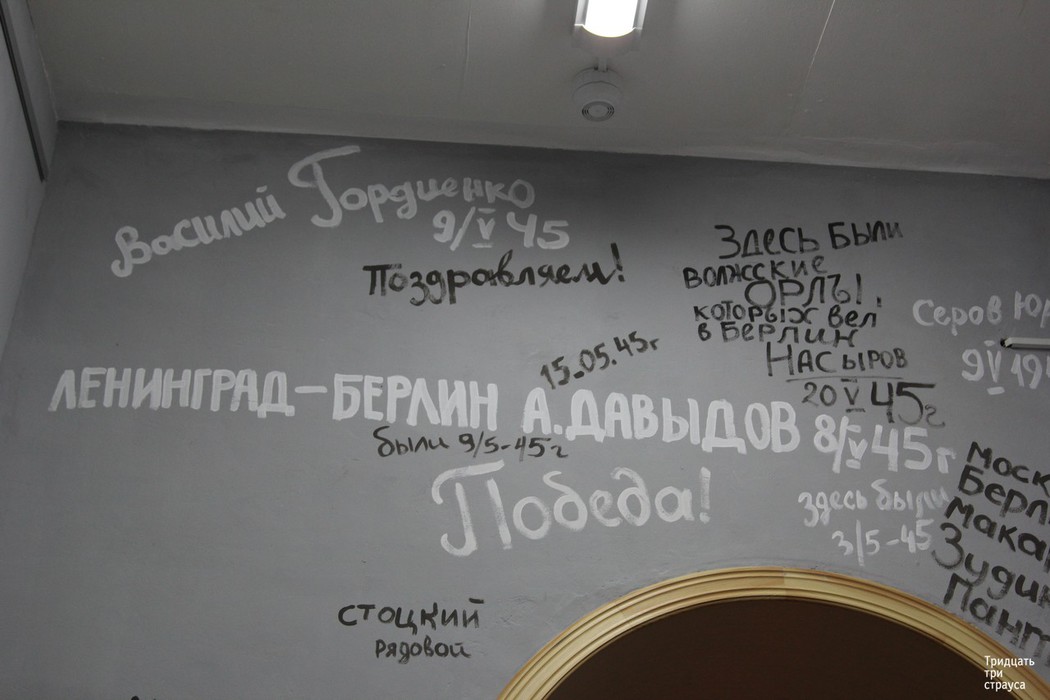 Василий Гордиенко
9/V 45
Поздравляем!
Здесь были
волжские
орлы,
которых вел
в Берлин
Насыров
20 V 45г
Серов Юр
9 V 194
15.05.45г
ЛЕНИНГРАД–БЕРЛИН А.ДАВЫДОВ 8/V 45г
были 9/5-45г
Победа!
здесь были
3/5-45
Моск
Берл
Мака
Зудин
Пант
Стоцкий
рядовой
Тридцать
три
страуса